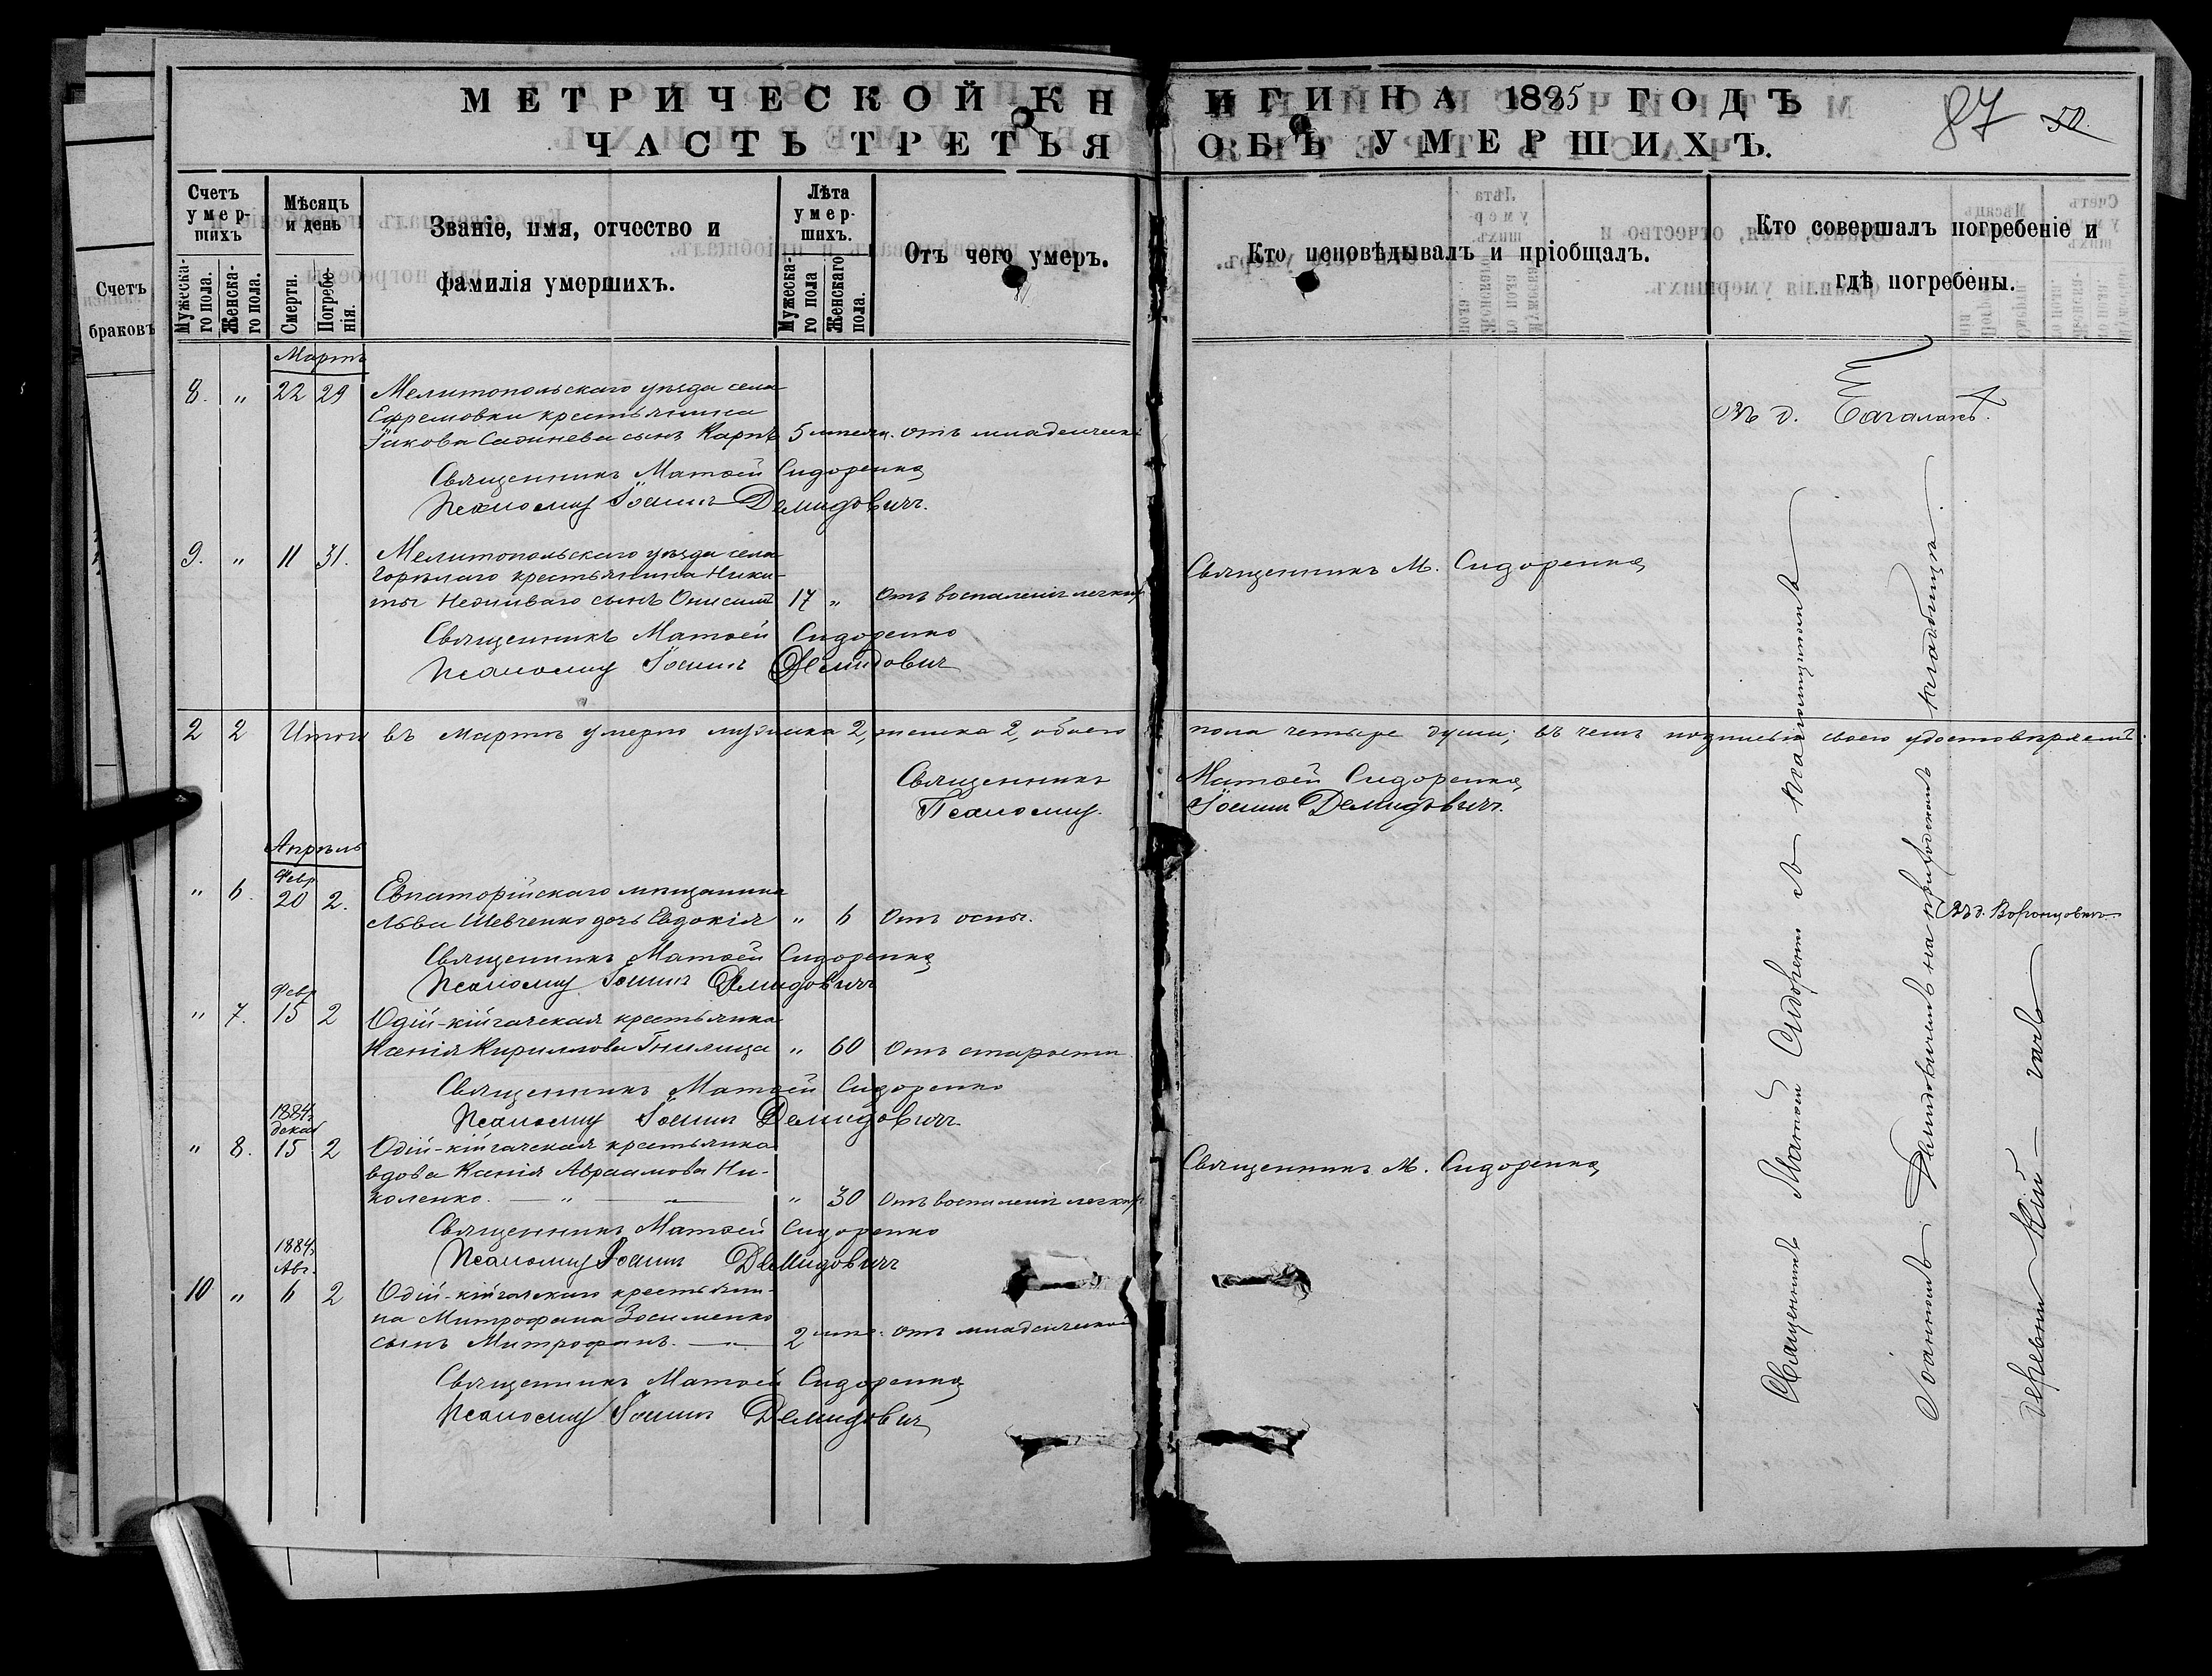 МЕТРИЧЕСКОЙ КНИГИ НА 1885 ГОДЪ
ЧАСТЬ ТРЕТЬЯ ОБЪ УМЕРШИХЪ.
87 50.
Счетъ
браковъ
Счетъ умер-шихъ
Мужеска-го пола.
Женска-го пола.
Мѣсяцъ и день
Смерти.
Погребе-нія.
Званіе, имя, отчество и
фамилія умершихъ.
Лѣта умер-шихъ.
Мужеска-го пола
Женскаго пола.
Отъ чего умеръ.
Кто исповѣдывалъ и пріобщалъ.
Кто совершалъ погребеніе и
гдѣ погребены.
Мартъ
8. " 22 29 Мелитопольскаго уѣзда села
Ефремовки крестьянина
Іакова сынъ Карпъ 5 отъ младенческ
Въ д.
Священникъ Матѳей Сидоренко
Псаломщ Іоаннъ Демидовичъ.
9. " 11 31. Мелитопольскаго уѣзда села
Горѣлаго крестьянина Ники-
ты сынъ Онисимъ 17 " Отъ воспаленія легкихъ
Священникъ М. Сидоренко
Священникъ Матѳей Сидоренко
Псаломщ Іоаннъ Демидовичъ
2 2 Итого въ Мартѣ умерло мужеска 2, женска 2, обоего пола четыре души; въ чемъ подписью своею удостовѣряемъ:
Священникъ Матѳей Сидоренко
Псаломщ. Іоаннъ Демидовичъ.
Апрѣль
Февр
" 6. 20 2. Евпаторійскаго мѣщанина
Льва Шевченко дочь Евдокія " 6 Отъ оспы.
Въ д.
Священникъ Матѳей Сидоренко
Псаломщ Іоаннъ Демидовичъ
Февр
" 7. 15 2 Одій-кійгачская крестьянка
Ксенія Кириллова Гнилица " 60 Отъ старости
Священникъ Матѳей Сидоренко
Псаломщ Іоаннъ Демидовичъ.
1884г.
декаб
" 8. 15 2 Одій-кійгачская крестьянка
вдова Ксенія Авраамова Ни-
коленко. — " — " 30 Отъ воспаленія легкихъ
Священникъ М. Сидоренко
Священникъ Матѳей Сидоренко
Псаломщ Іоаннъ Демидовичъ
1884г.
Авг.
10 " 6 2 Одій-кійгачскаго крестьяни-
на Митрофана Зосименко
сынъ Митрофанъ. — 2 отъ младенческой
Священникъ Матѳей Сидоренко
Псаломщ Іоаннъ Демидовичъ
Священникъ Матѳей Сидоренко съ псаломщикомъ
Іоанномъ Демидовичемъ на приходскомъ кладбищѣ.
деревни Кій-